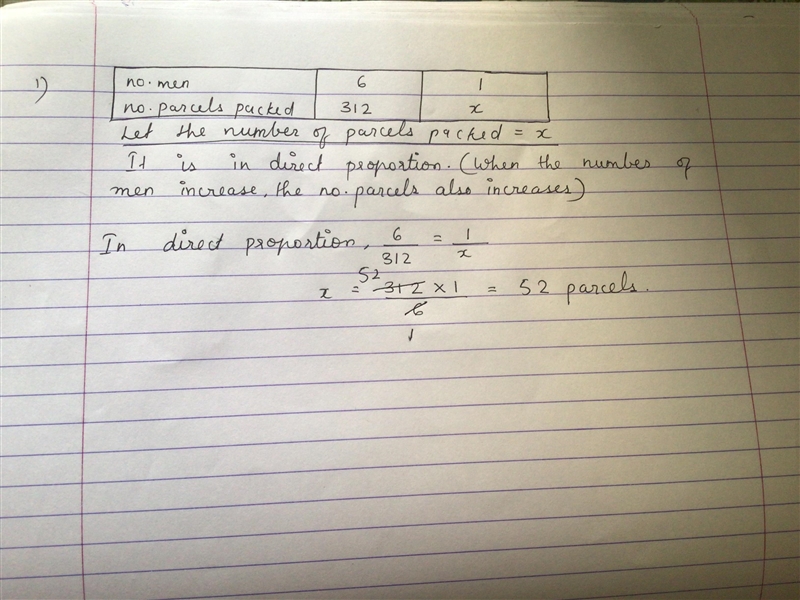 1)
no. men 6 1
no. parcels packed 312 x
Let the number of parcels packed = x
It is in direct proportion. (When the number of
men increase, the no. parcels also increases)
In direct proportion, 6/312 = 1/x
x = 52 312 × 1 / 6 1 = 52 parcels.